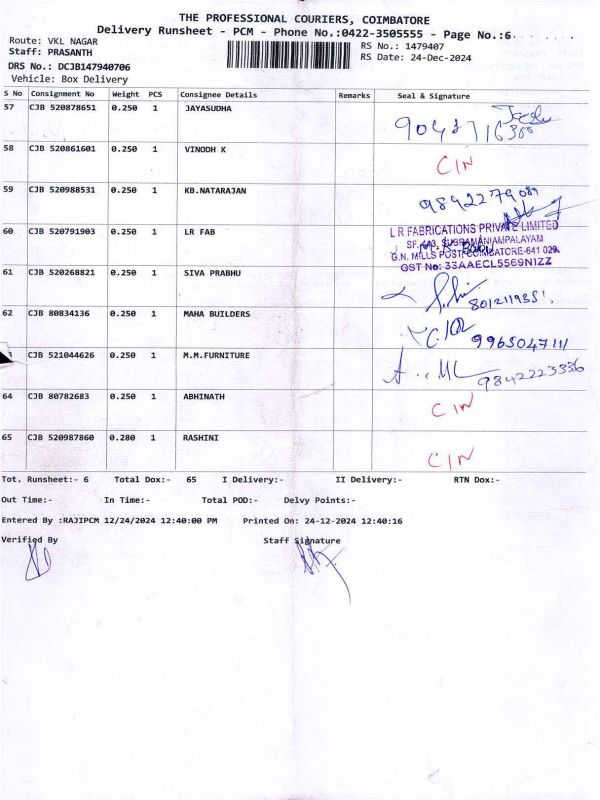 THE PROFESSIONAL COURIERS, COIMBATORE
Delivery Runsheet - PCM - Phone No.:0422-3505555 - Page No.:6
Route: VKL NAGAR
Staff: PRASANTH
RS No.: 1479407
RS Date: 24-Dec-2024
DRS No.: DCJB147940706
Vehicle: Box Delivery
S No Consignment No Weight PCS Consignee Details Remarks Seal & Signature
57 CJB 520878651 0.250 1 JAYASUDHA
58 CJB 520861601 0.250 1 VINODH K CIN
59 CJB 520988531 0.250 1 KB.NATARAJAN 9842279089
60 CJB 520791903 0.250 1 LR FAB
L R FABRICATIONS PRIVATE LIMITED
SF. 443, SUBRAMANIAMPALAYAM
G.N. MILLS POST, COIMBATORE-641 029.
GST No: 33AAECL5569N1ZZ
61 CJB 520268821 0.250 1 SIVA PRABHU
62 CJB 80834136 0.250 1 MAHA BUILDERS 9965047111
CJB 521044626 0.250 1 M.M.FURNITURE
64 CJB 80782683 0.250 1 ABHINATH CIN
65 CJB 520987860 0.280 1 RASHINI CIN
Tot. Runsheet:- 6 Total Dox:- 65 I Delivery:- II Delivery:- RTN Dox:-
Out Time:- In Time:- Total POD:- Delvy Points:-
Entered By :RAJIPCM 12/24/2024 12:40:00 PM Printed On: 24-12-2024 12:40:16
Verified By Staff Signature